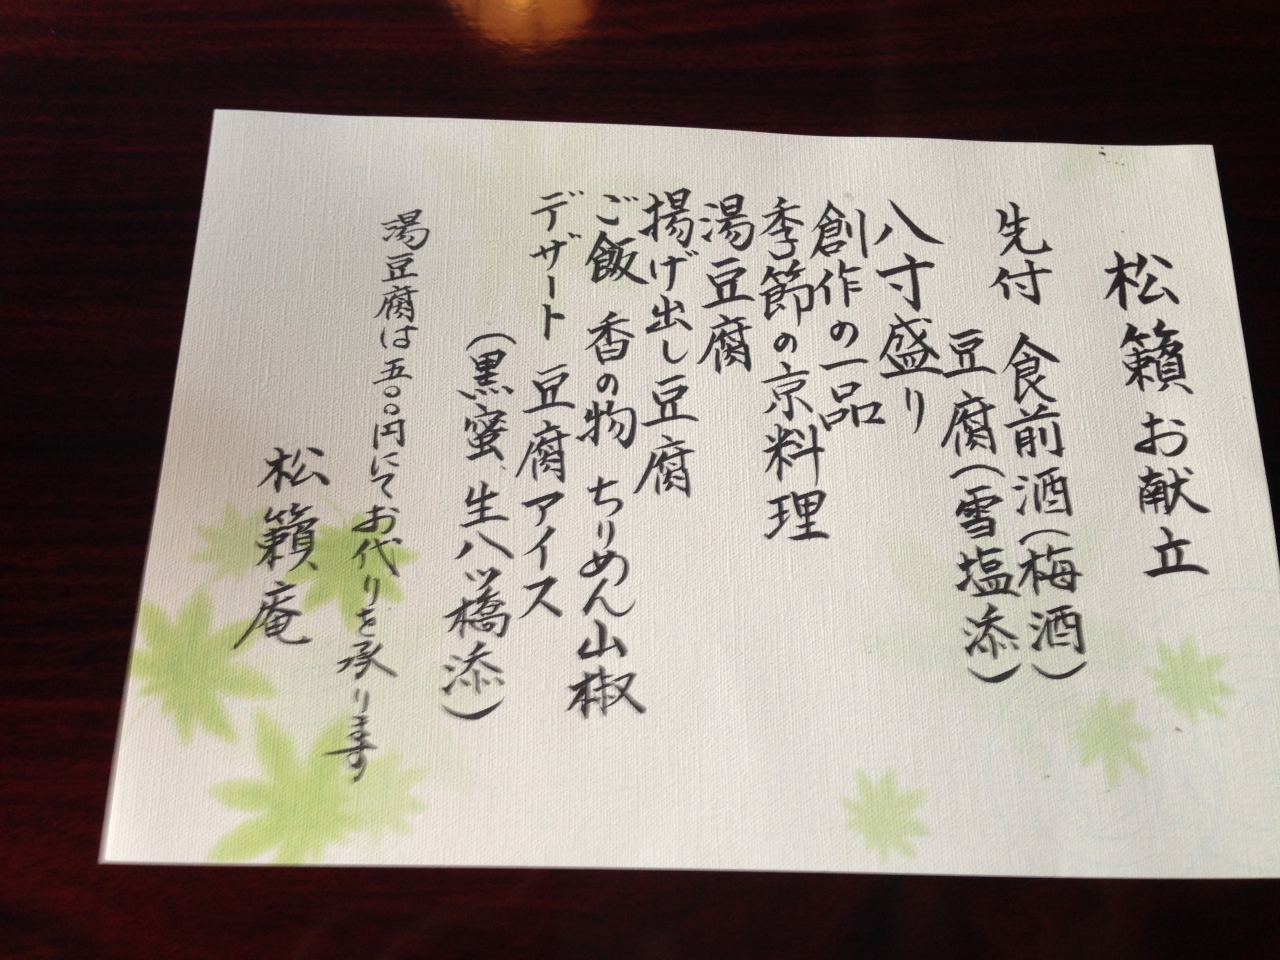 松籟お献立
先付 食前酒(梅酒)
豆腐(雪塩添)
八寸盛り
創作の一品
季節の京料理
湯豆腐
揚げ出し豆腐
ご飯 香の物 ちりめん山椒
デザート 豆腐アイス
(黒蜜、生八ツ橋添)
湯豆腐は五〇〇円にてお代りを承ります
松籟庵